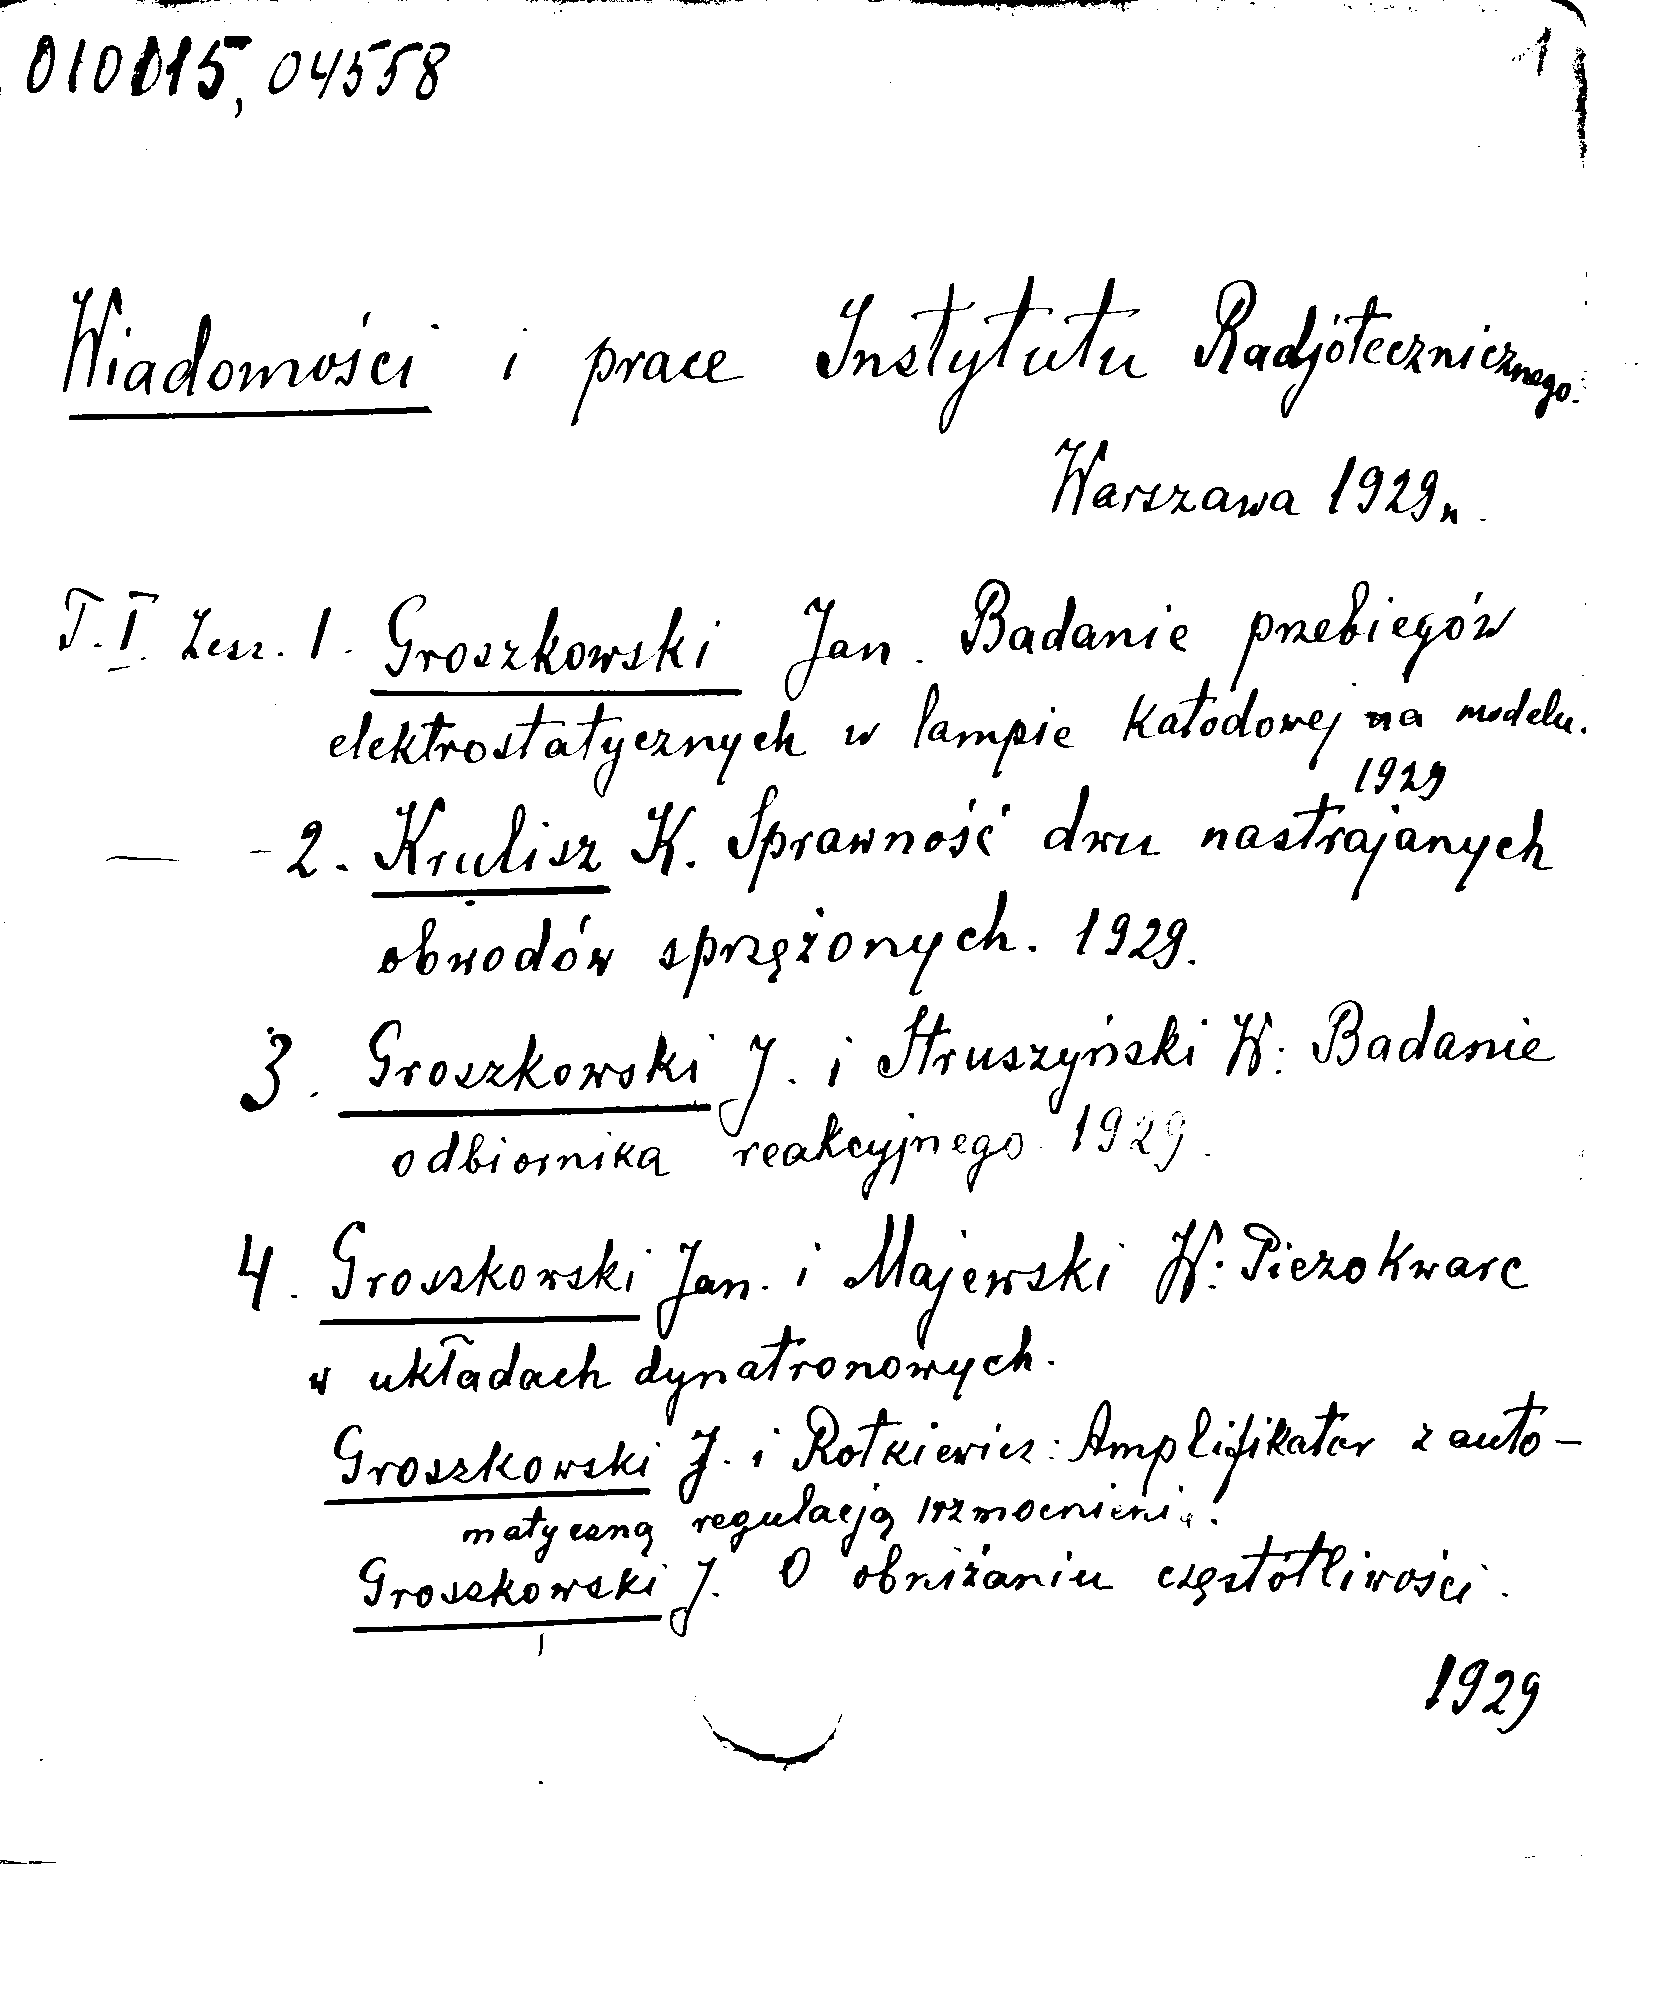 010015, 04558
1
Wiadomości i prace Instytutu Radjotecznicznego.
Warszawa 1929 r.
T. I. Zesz. 1. Groszkowski Jan. Badanie przebiegów
elektrostatycznych w lampie katodowej na modelu.
1929
— - 2. Krulisz K. Sprawność dwu nastrajanych
obwodów sprzężonych. 1929.
3. Groszkowski J. i Struszyński W: Badanie
odbiornika reakcyjnego 1929.
4. Groszkowski Jan. i Majewski W: Piezokwarc
w układach dynatronowych.
Groszkowski J. i Rotkiewicz: Amplifikator z auto-
matyczną regulacją wzmocnienia.
Groszkowski J. O obniżaniu częstotliwości.
1929